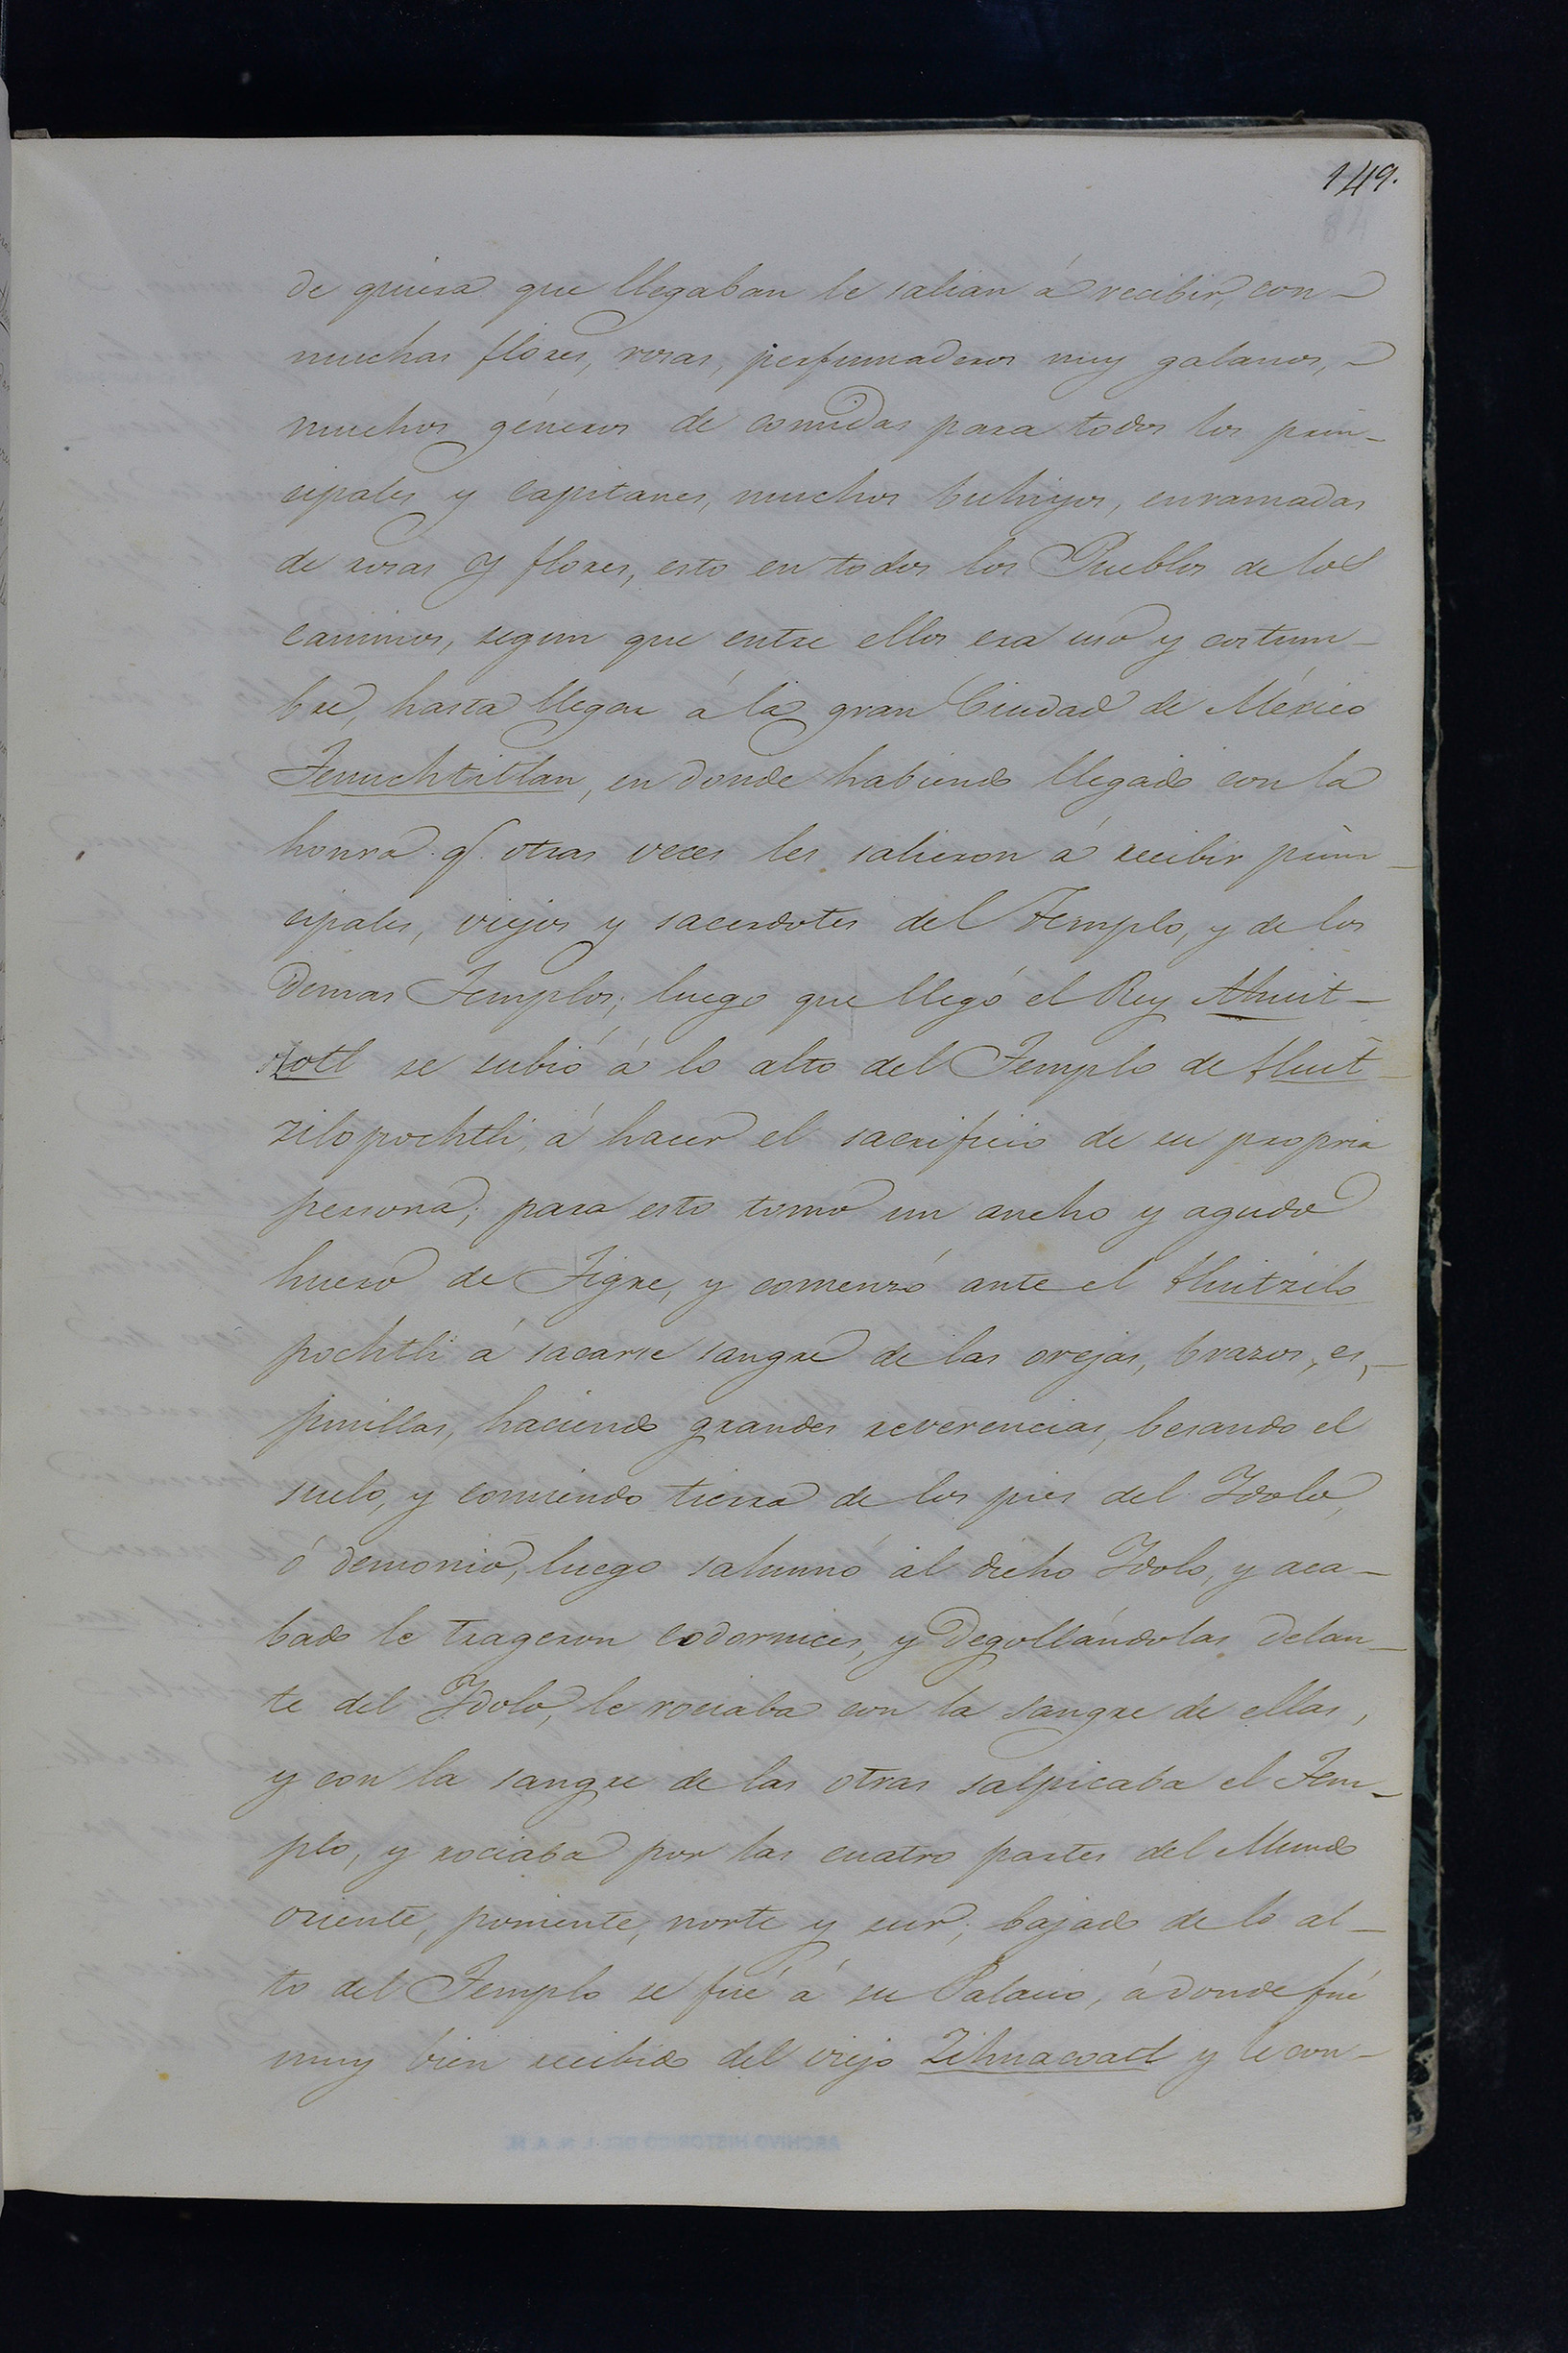 149.
84
de quiera que llegaban le salian á recibir, con-
muchas flores, rosas, perfumaderos muy galanos, -
muchos géneros de comidas para todos los prin-
cipales y capitanes, muchos buhiyos, enramadas
de rosas y flores, esto en todos los Pueblos de los
caminos, segun que entre ellos era uso y costum-
bre, hasta llegar á la gran Ciudad de México
Tenuchtitlan, en donde habiendo llegado con la
honra q.e otras veces les salieron á recibir prin-
cipales, viejos y sacerdotes del Templo, y de los
demas Templos; luego que llegó el Rey Ahuit-
zotl se subió á lo alto del Templo de Huit-
zilopochtli, á hacer el sacrificio de su propria
persona; para esto tomó un ancho y agudo
hueso de Tigre, y comenzó ante el Huitzilo
pochtli á sacarse sangre de las orejas, brazos, es,-
pinillas, haciendo grandes reverencias, besando el
suelo, y comiendo tierra de los pies del Idolo,
ó demonio, luego sahumó al dicho Idolo, y aca-
bado le trageron codornices, y degollándolas delan-
te del Idolo, le rociaba con la sangre de ellas,
y con la sangre de las otras salpicaba el Tem-
plo, y rociaba por las cuatro partes del Mundo
oriente, poniente, norte y sur; bajado de lo al-
to del Templo se fué á su Palacio, á donde fué
muy bien recibido del viejo Zihuacoatl y le con-
ARCHIVO HISTORICO DEL I. N. A. H.